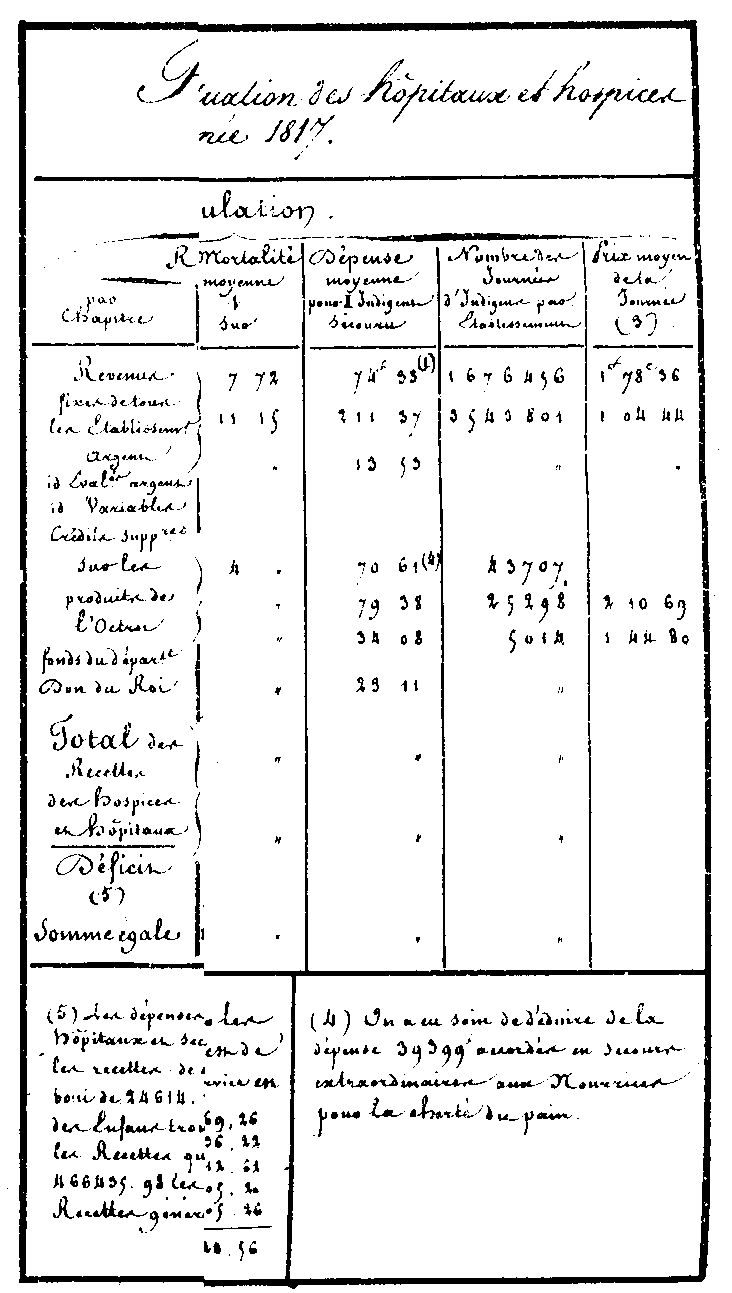 uation des hôpitaux et hospices
née 1817.
ulation.
R Mortalité Dépense Nombre des Prix moyen
moyenne moyenne Journées de la
par 1 pour 1 Indigent d'Indigens par Journée
Chapitre sur secouru Etablissement (3)
Revenus 7 72 74f 33(1) 1676456 1f 78c 36
fixes de tous
les Etablissemts 11 15 211 37 3543801 1 04 44
Argent " 13 53 " "
id Evalés argent
id Variables
Crédits suppres
sur les 4 " 70 61(4) 43707
produits de " 79 38 25298 2 10 63
l'Octroi " 34 08 5014 1 44 80
fonds du départt
Don du Roi " 23 11 "
Total des " " "
Recettes
des hospices
et hôpitaux " " "
Déficit
(5)
Somme égale " " "
(5) Les dépenses
o les
hôpitaux et sec
est de
les recettes de
rvice est
boni de 24614.
des Enfans trou
69.26
36.22
les Recettes qu
12.62
466435.98 les
05.20
Recettes génér
05.26
20.56
(4) On a eu soin de déduire de la
dépense 39399f accordés en secours
extraordinaires aux Nourrices
pour la cherté du pain.